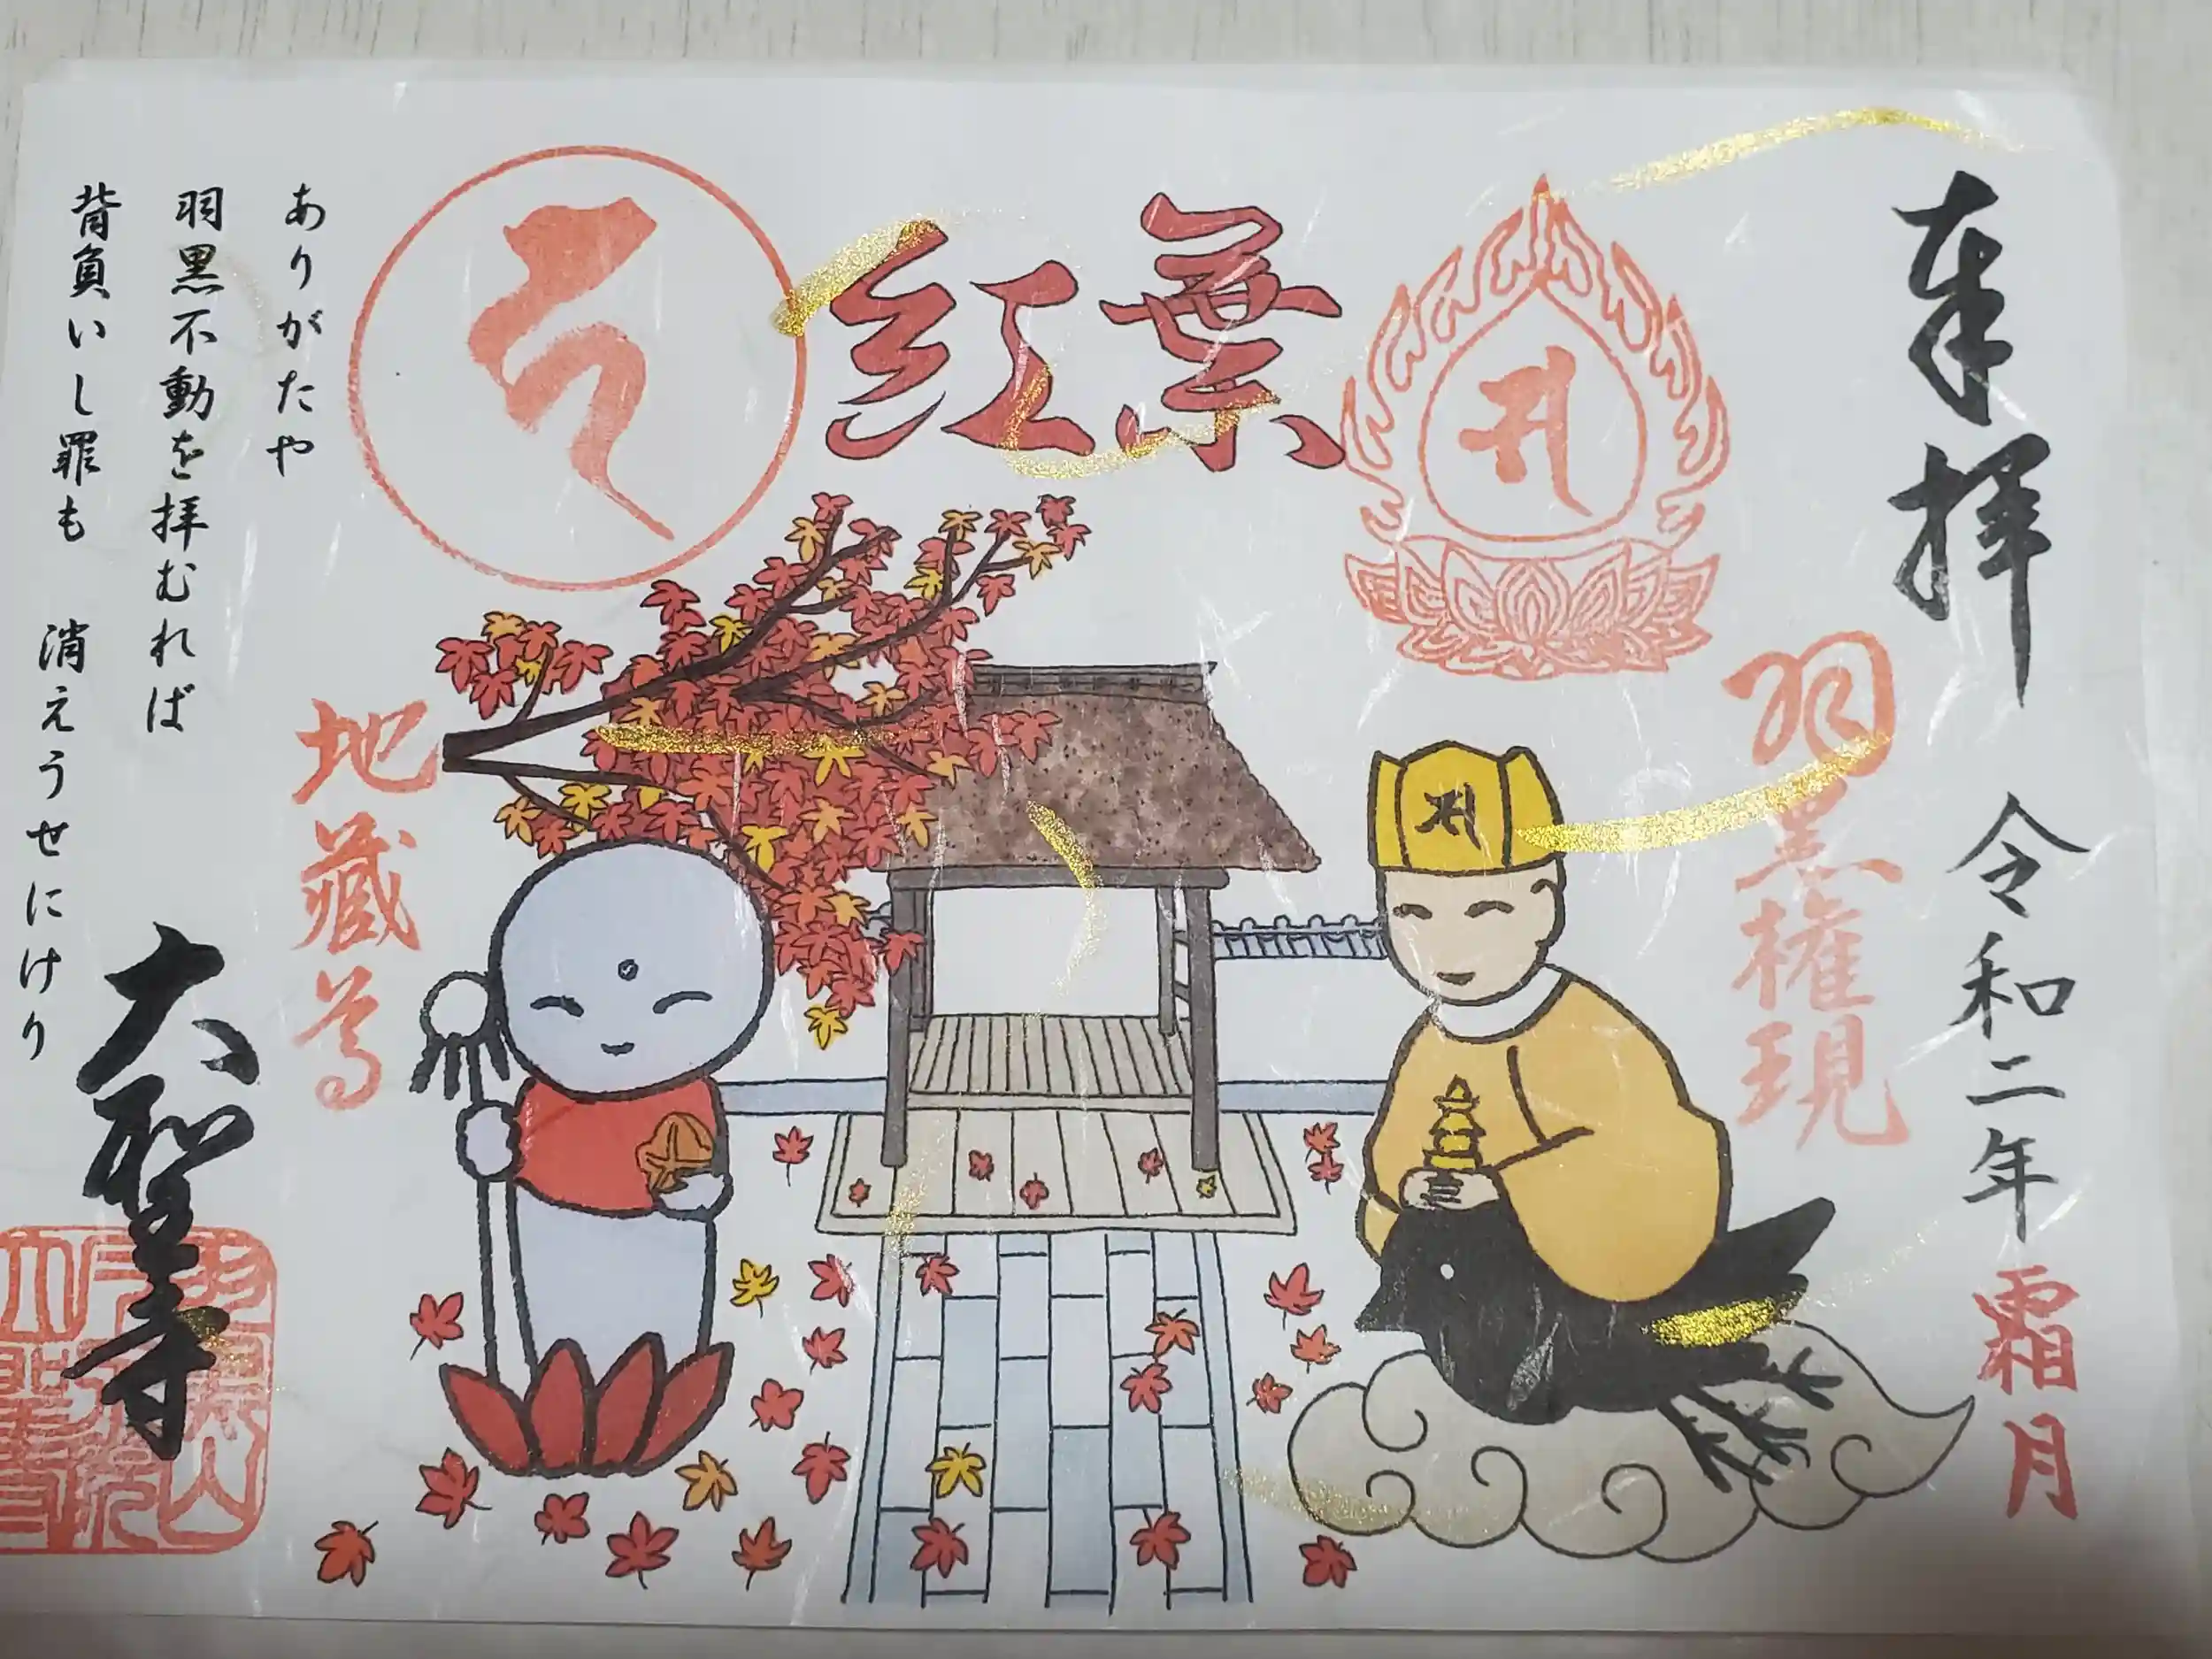 奉拝
令和二年
霜月
羽黒権現
紅葉
地蔵尊
ありがたや
羽黒不動を拝むれば
背負いし罪も 消えうせにけり
大聖寺